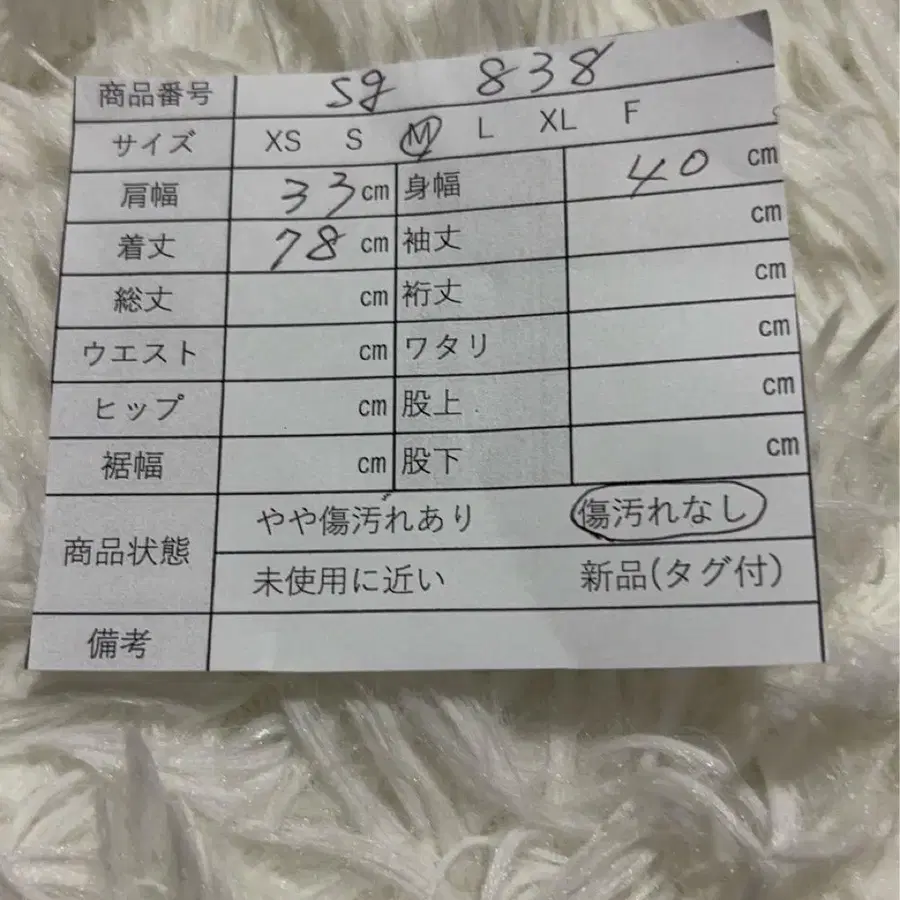 商品番号 sg 838
サイズ XS S M L XL F
肩幅 33cm 身幅 40cm
着丈 78cm 袖丈 cm
総丈 cm 裄丈 cm
ウエスト cm ワタリ cm
ヒップ cm 股上 cm
裾幅 cm 股下 cm
商品状態 やや傷汚れあり 傷汚れなし
未使用に近い 新品(タグ付)
備考